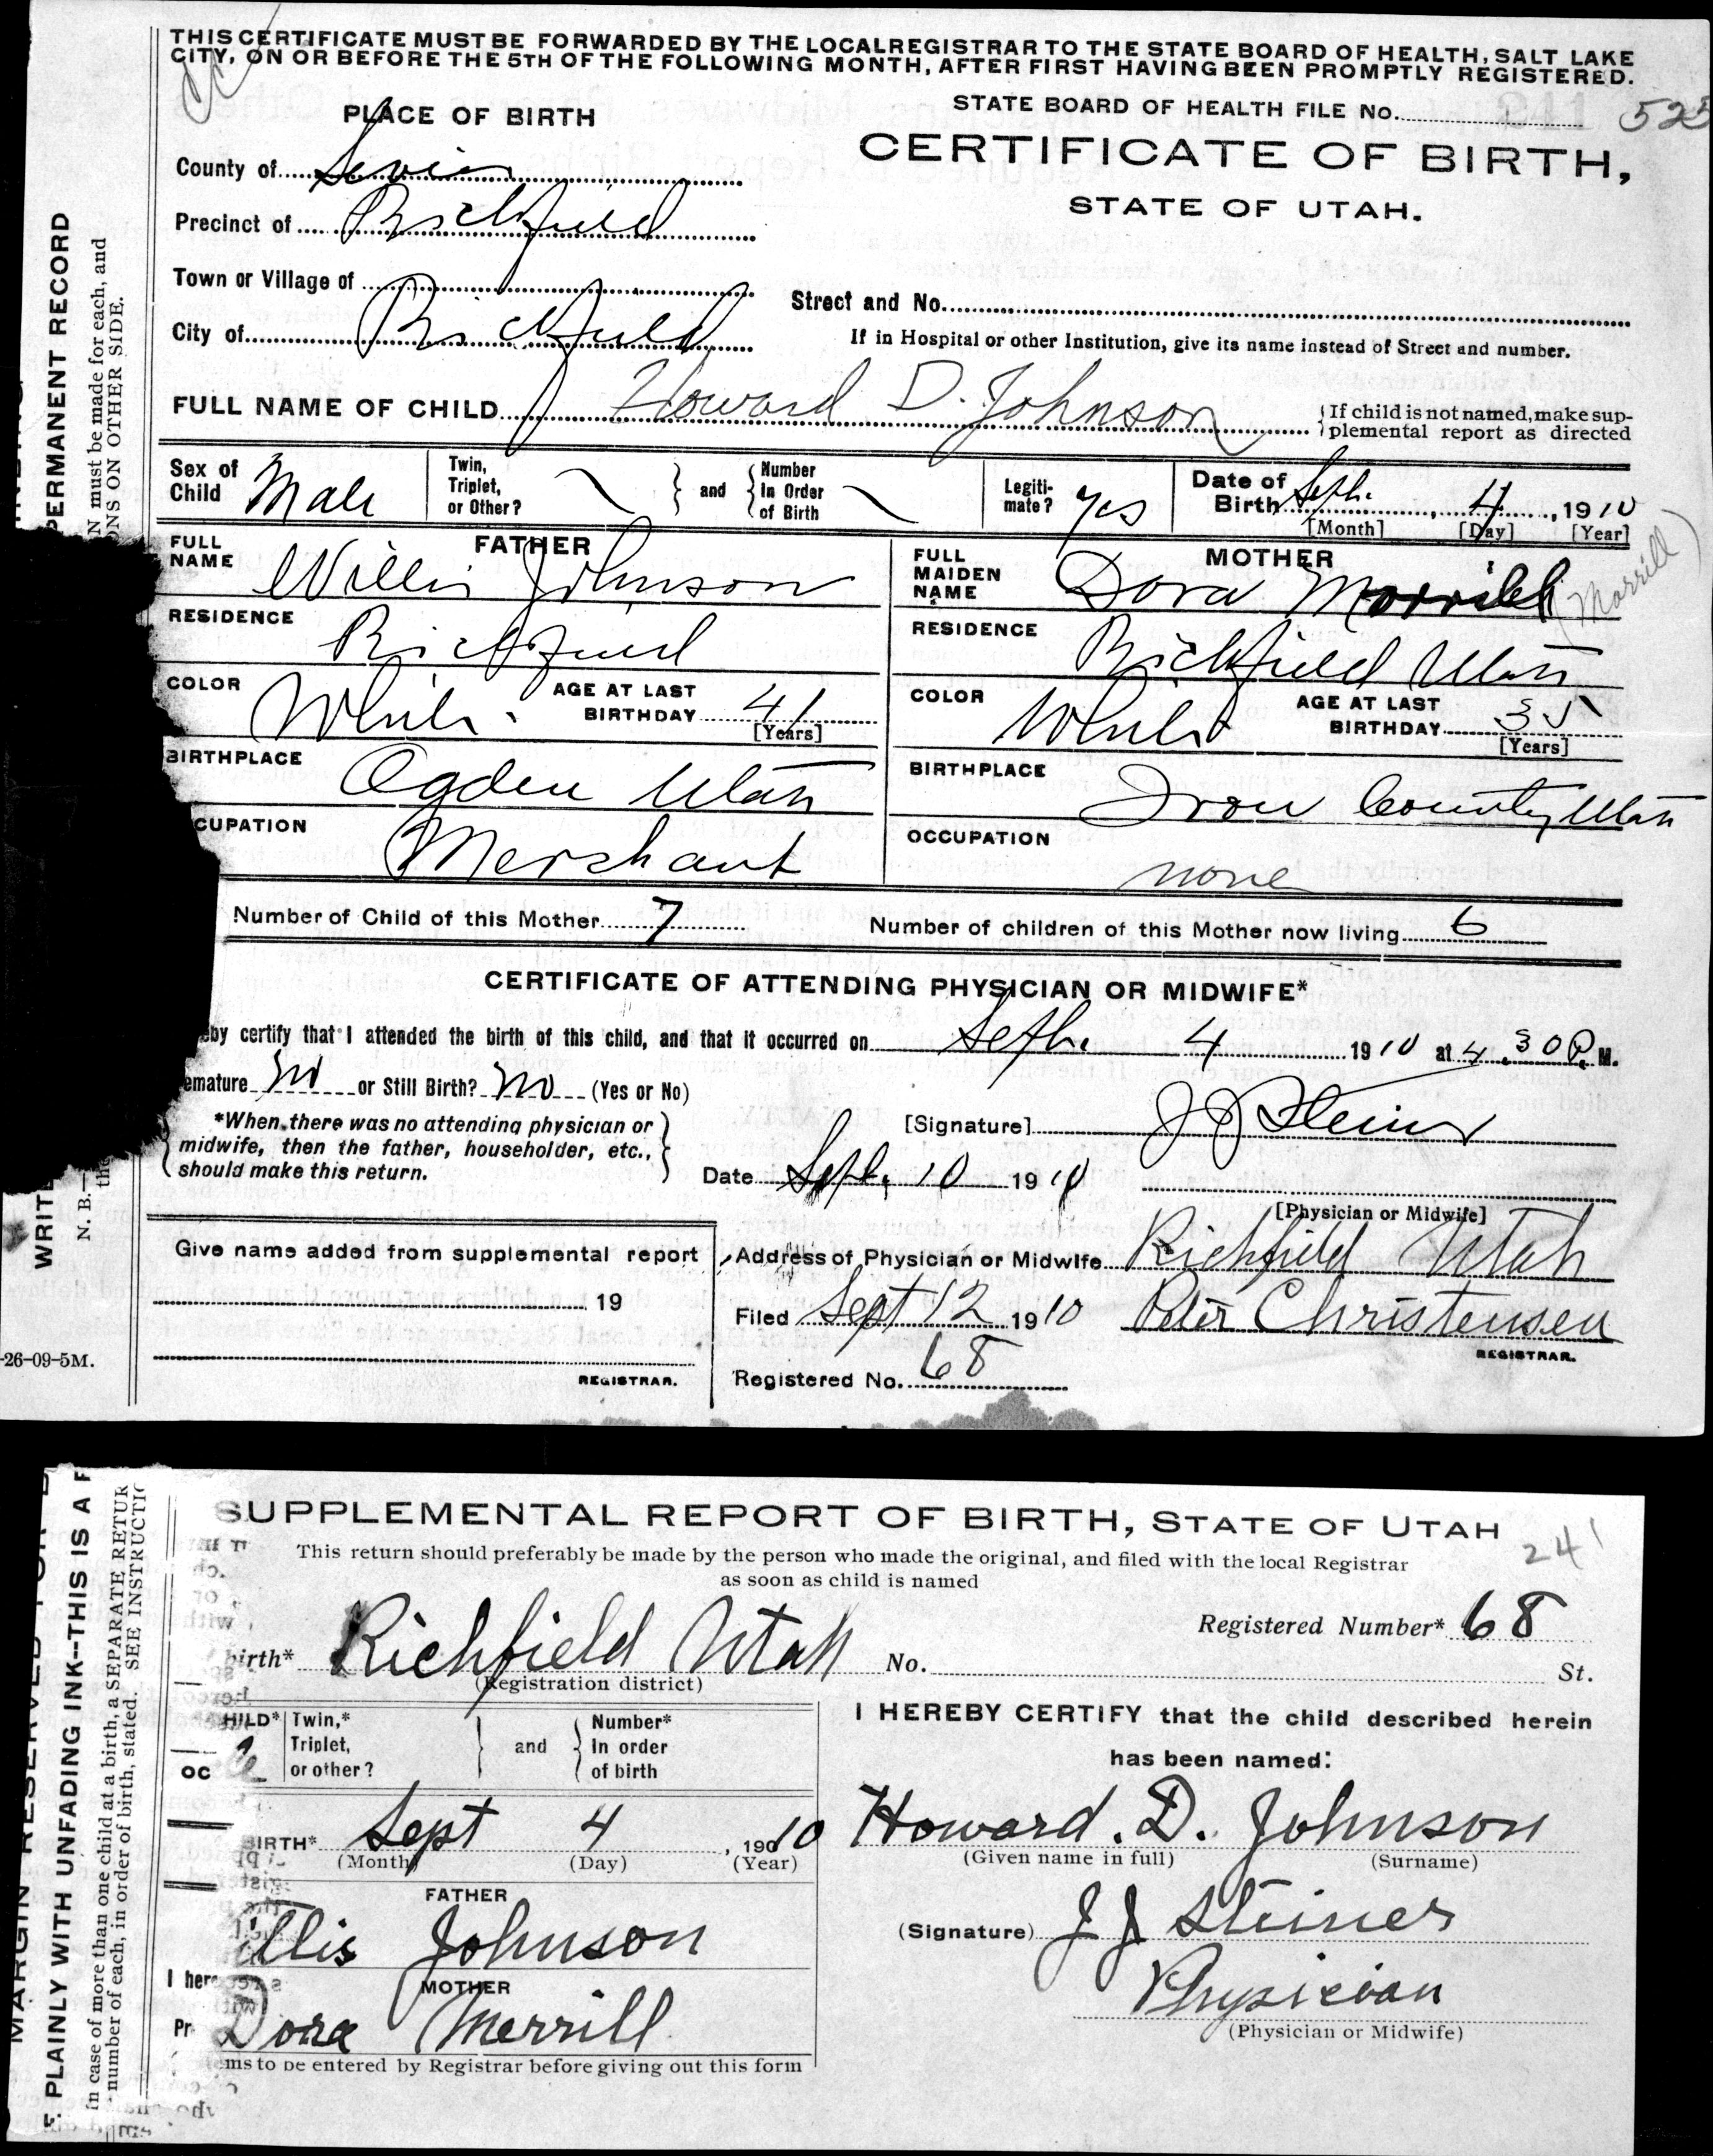 THIS CERTIFICATE MUST BE FORWARDED BY THE LOCAL REGISTRAR TO THE STATE BOARD OF HEALTH, SALT LAKE
CITY, ON OR BEFORE THE 5TH OF THE FOLLOWING MONTH, AFTER FIRST HAVING BEEN PROMPTLY REGISTERED.
PLACE OF BIRTH
STATE BOARD OF HEALTH FILE No. 241 525
CERTIFICATE OF BIRTH,
STATE OF UTAH.
County of Sevier
Precinct of Richfield
Town or Village of
City of Richfield
Street and No.
If in Hospital or other Institution, give its name instead of Street and number.
FULL NAME OF CHILD Howard D. Johnson
If child is not named, make sup-
plemental report as directed
Sex of Child Male
Twin, Triplet, or Other?
and
Number In Order of Birth
Legiti-mate? yes
Date of Birth Sept. 4, 1910
[Month] [Day] [Year]
FATHER
FULL NAME Willis Johnson
RESIDENCE Richfield
COLOR White. AGE AT LAST BIRTHDAY 41
[Years]
BIRTHPLACE Ogden Utah
CUPATION Merchant
MOTHER
FULL MAIDEN NAME Dora Morrill
(Morrill)
RESIDENCE Richfield Utah
COLOR White AGE AT LAST BIRTHDAY 35
[Years]
BIRTHPLACE Iron County Utah
OCCUPATION none
Number of Child of this Mother 7 Number of children of this Mother now living 6
CERTIFICATE OF ATTENDING PHYSICIAN OR MIDWIFE*
eby certify that I attended the birth of this child, and that it occurred on Sept. 4 1910 at 4.30 P. M.
emature no or Still Birth? no (Yes or No)
*When there was no attending physician or
midwife, then the father, householder, etc.,
should make this return.
[Signature] J J Steiner
Date Sept. 10 1910
[Physician or Midwife]
Give name added from supplemental report
19
REGISTRAR.
Address of Physician or Midwife Richfield Utah
Filed Sept 12 1910 Peter Christensen
REGISTRAR.
Registered No. 68
-26-09-5M.
PERMANENT RECORD
N must be made for each, and
ONS ON OTHER SIDE.
WRITE
N. B.—
the
SUPPLEMENTAL REPORT OF BIRTH, STATE OF UTAH
241
This return should preferably be made by the person who made the original, and filed with the local Registrar
as soon as child is named
Registered Number* 68
birth* Richfield Utah No. St.
(Registration district)
HILD* Twin,* Triplet, or other?
and
Number* In order of birth
BIRTH* Sept 4, 1910
(Month) (Day) (Year)
I HEREBY CERTIFY that the child described herein
has been named:
Howard. D. Johnson
(Given name in full) (Surname)
FATHER
illis Johnson
MOTHER
Dora Merrill
ms to be entered by Registrar before giving out this form
(Signature) J J Steiner
Physician
(Physician or Midwife)
oc
I here
Pr
MARGIN RESERVED FOR
PLAINLY WITH UNFADING INK--THIS IS A P
In case of more than one child at a birth, a SEPARATE RETUR
number of each, in order of birth, stated. SEE INSTRUCTIO